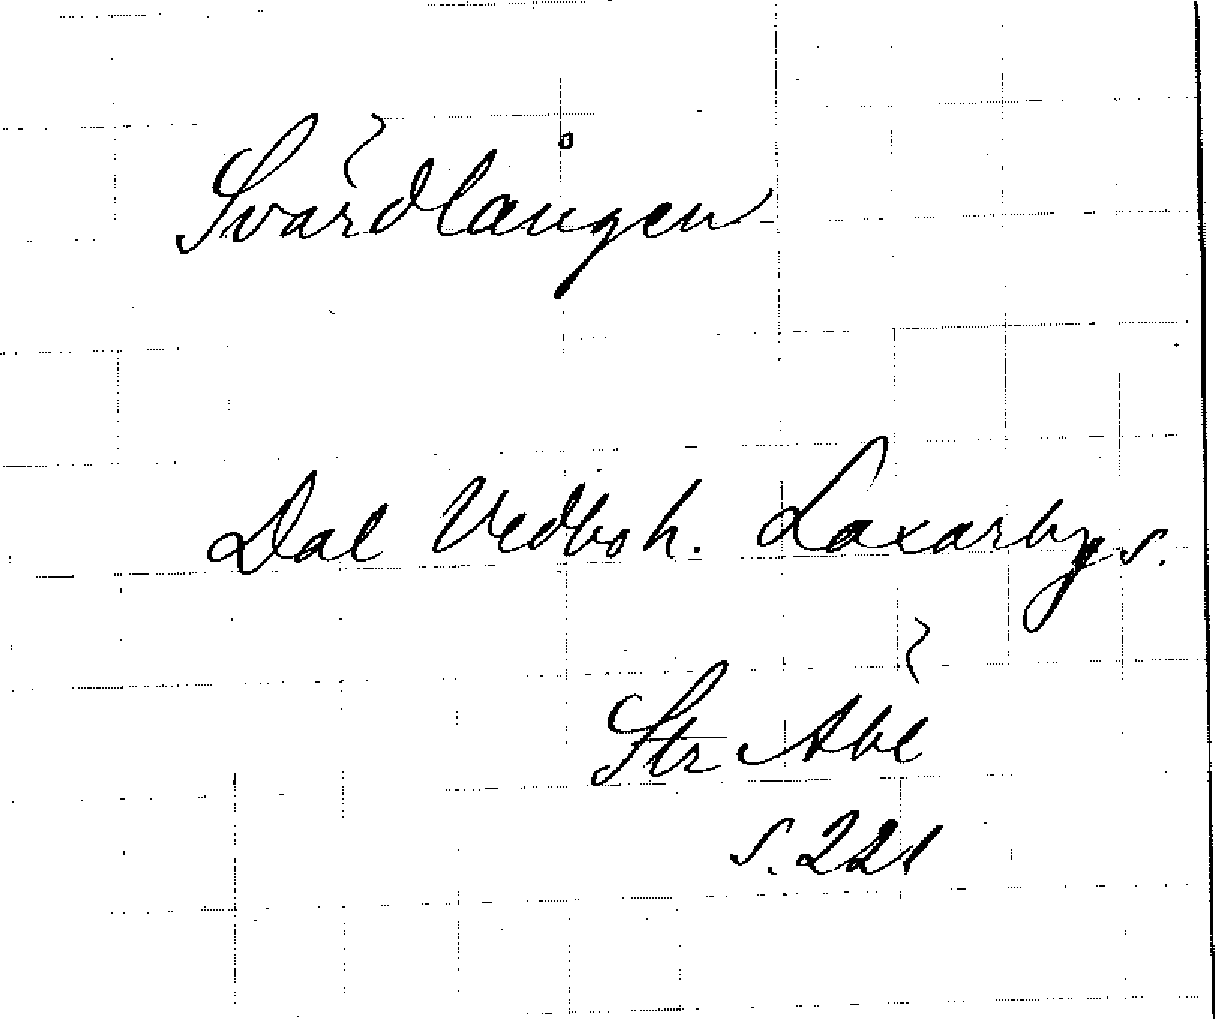 Svärdlången
Dal Vedbo h. Laxarby s.
Str Äbl
s. 221